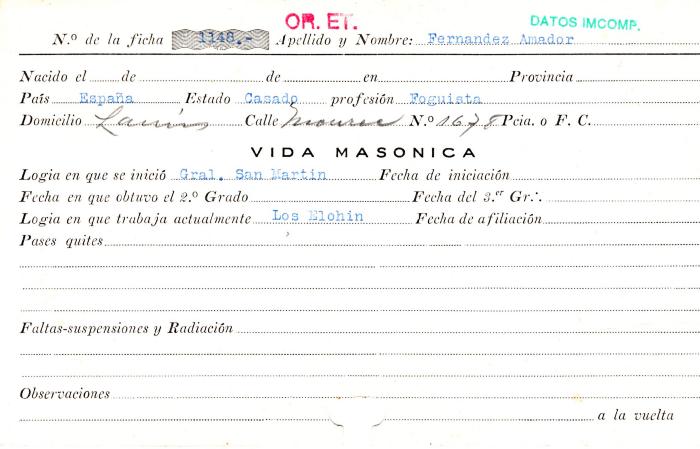 OR. ET.
DATOS IMCOMP.
N.º de la ficha 1148.- Apellido y Nombre: Fernandez Amador
Nacido el de de en Provincia
País España Estado Casado profesión Foguista
Domicilio Lanús Calle N.º 1678 Pcia. o F. C.
VIDA MASONICA
Logia en que se inició Gral. San Martin Fecha de iniciación
Fecha en que obtuvo el 2.º Grado Fecha del 3.er Gr∴
Logia en que trabaja actualmente Los Elohin Fecha de afiliación
Pases quites
Faltas-suspensiones y Radiación
Observaciones
a la vuelta